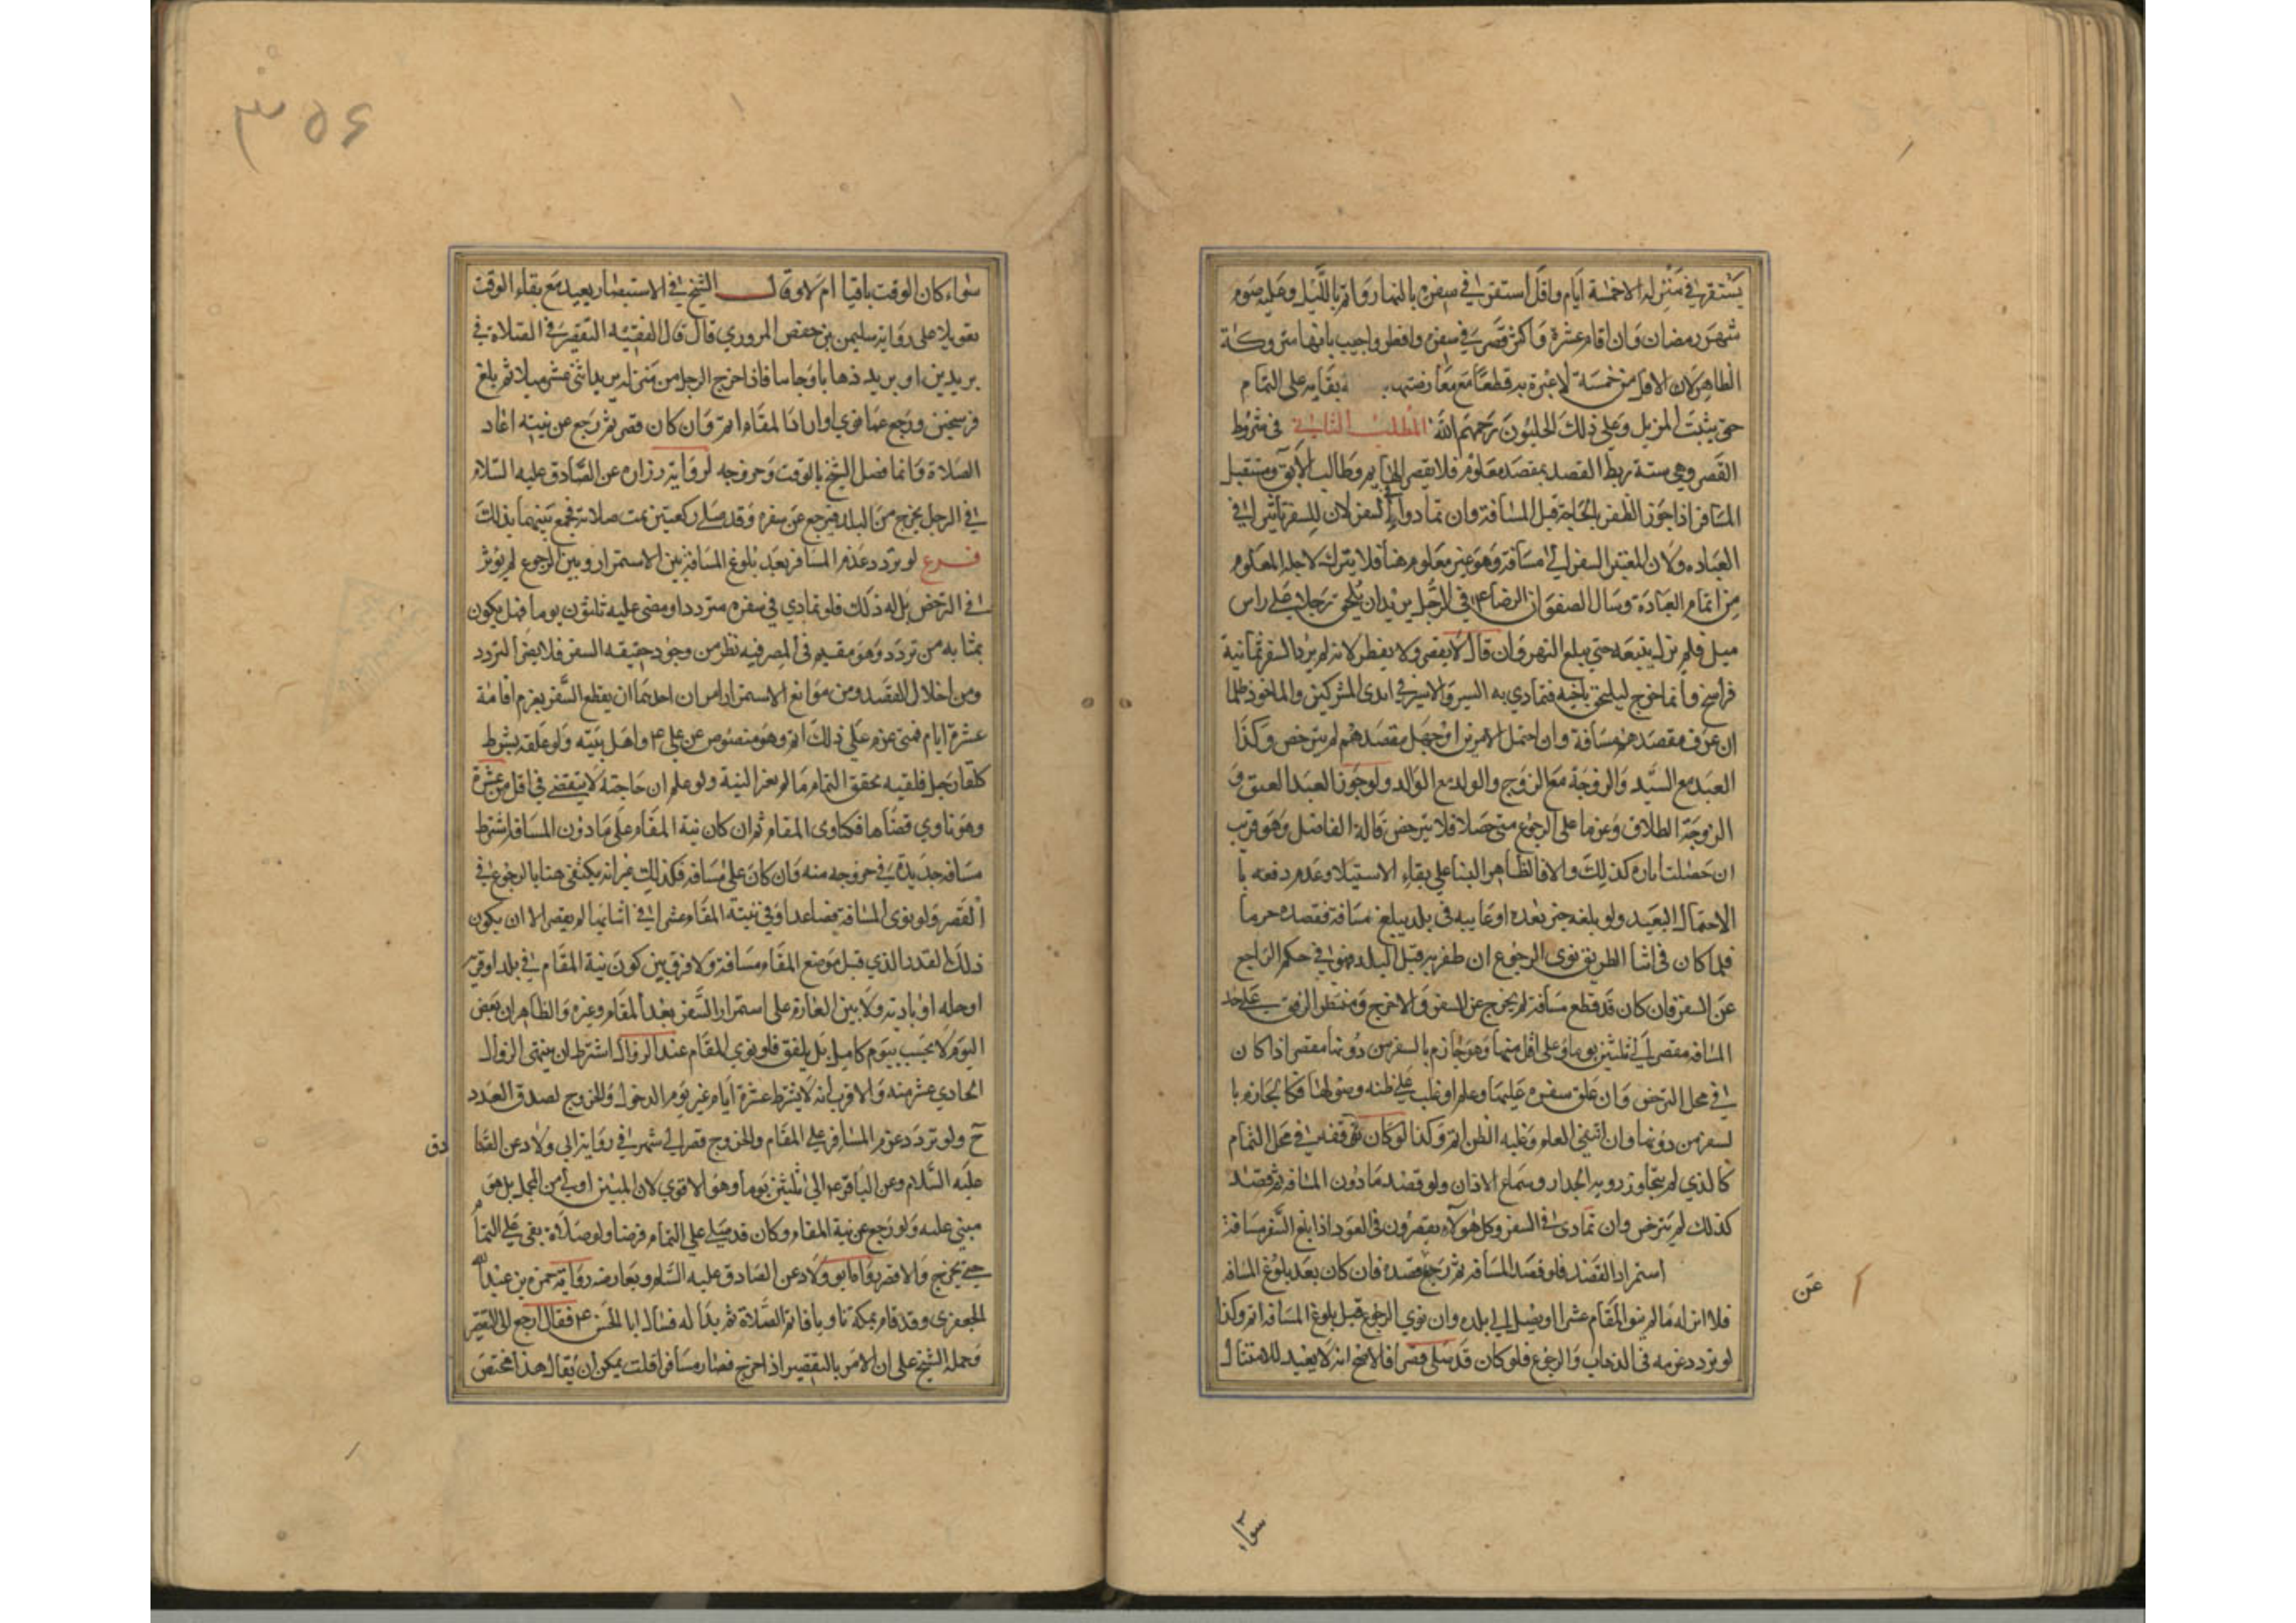 يستقر في منزله الا خمسة ايام واقل استقر في سفره بالنهار واتم بالليل وعليه صوم
شهر رمضان وان اقام عشرة واكثر قصر في سفره وافطر واجيب بانها متروكة
الظاهر لان الاقل من خمسة لا عبرة به قطعا مع معارضتها بقايه على التمام
حتى يثبت المزيل وعلى ذلك الحليون رحمهم الله المطلب الثاني في شروط
القصر وهي ستة ربط القصد بمقصد معلوم فلا يقصر الهايم وطالب الآبق ومستقبل
المسافر اذا جوز الظفر بالحاجة قبل المسافة وان تمادوا في السفر لان للسفر تأثيرا في
العباده ولان المعتبر السفر الى مسافة وهو غير معلوم هنا فلا يترك لاجله المعلوم
من اتمام العبادة وسال الصفوان الرضا ع في الرجل يريد ان يلحق رجلا على راس
ميل فلم يزل يتبعه حتى يبلغ النهروان قال لا يقصر ولا يفطر لانه لم يرد السفر ثمانية
فراسخ وانما خرج ليلحق باخيه فتمادي به السير والاسير في ايدى المشركين والماخوذ ظلما
ان عرف مقصدهم مسافة وان احتمل الامرين او جهل مقصدهم لم يترخص وكذا
العبد مع السيد والزوجة مع الزوج والولد مع الوالد ولو جوز العبد العتق و
الزوجة الطلاق وعزما على الرجوع متى حصلا فلا يترخص قاله الفاضل وهو قريب
ان حصلت امارة لذلك والا فالظاهر البنا على بقاء الاستيلا وعدم دفعه با
الاحتمال البعيد ولو بلغه خبر بعده او غايبه في بلد يبلغ مسافة فقصده جزما
فلما كان في اثنا الطريق نوى الرجوع ان ظفر به قبل البلد فهو في حكم الراجع
عن السفر فان كان قد قطع مسافة لم يخرج عن السفر والا خرج ومنتظر الرفقة على حد
المسافة مقصر الى ثلثين يوما وعلى اقل منها وهو جازم بالسفر من دونها مقصر اذا كان
في محل الترخص وان علق سفره عليها وعلم او غلب على ظنه وصولها فكالجازم با
لسفر من دونها وان انتفى العلم وغلبه الظن اتم وكذا لو كان توقفه في محل التمام
كالذي لم يتجاوز رويه الجدار وسماع الاذان ولو قصد ما دون المسافة ثم قصد
كذلك لم يترخص وان تمادى في السفر وكل هؤلاء يقصرون في العود اذا بلغ السفر مسافة
استمرار القصد فلو قصد المسافه ثم رجع قصده فان كان بعد بلوغ المسافه
عن
فلا اثر له ما لم ينو المقام عشرا او يصل الى بلده وان نوي الرجوع قبل بلوغ المسافة اتم وكذا
لو تردد عزمه في الذهاب والرجوع فلو كان قد صلى قصرا فالاصح انه لا يعيد للامتثال
سواء
٣٥٤
سواء كان الوقت باقيا ام لا وقال الشيخ في الاستبصار يعيد مع بقاء الوقت
تعويلا على رواية سليمن بن حفص المروزي قال قال الفقيه التقصير في الصلاة في
بريدين او بريد ذهابا وجاسا فاذا خرج الرجل من منزله يريد اثني عشر ميلا ثم بلغ
فرسخين ورجع عما نوي او اراد المقام اتم وان كان قصر ثم رجع عن نيته اعاد
الصلاة وانما فصل الشيخ بالوقت وخروجه لرواية زراره عن الصادق عليه السلام
في الرجل يخرج من البلد فيرجع عن سفره وقد صلى ركعتين تمت صلاته فجمع بينهما بذلك
فرع لو تردد عزم المسافر بعد بلوغ المسافة بين الاستمرار وبين الرجوع لم يوثر
في الترخص بل له ذلك فلو تمادي في سفره مترددا ومضى عليه ثلثون يوما فهل يكون
بمثابه من تردد وهو مقيم في المصر فيه نظر من وجود حقيقه السفر فلا يضر التردد
ومن اخلال القصد ومن موانع الاستمرار امران احدهما ان يقطع السفر بعزم اقامة
عشرة ايام فمتى عزم على ذلك اتم وهو منصوص عن علي ع واهل بيته ولو علقه بشرط
كلقا رجل فلقيه تحقق التمام ما لم يغير النية ولو علم ان حاجته لا تنقضي في اقل من عشرة
وهو ناوي قضاها فكناوى المقام ثم ان كان نية المقام على ما دون المسافة اشترط
مسافه جديدة في خروجه منه وان كان على مسافة فكذلك غير انه يكتفى هنا بالرجوع في
القصر ولو نوى المسافة فصاعدا وفي نيتة المقام عشرا في اثنائها لم يقصر الا ان يكون
ذلك القدر الذي قبل موضع المقام مسافة ولا فرق بين كون نية المقام في بلد او قريه
او حله او باديه ولا بين العازم على استمرار السفر بعد المقام وغيره والظاهر ان بعض
اليوم لا يحسب بيوم كامل بل يلفق فلو نوي المقام عند الزوال اشترط ان ينتهى الزوال
الحادي عشر منه والاقرب انه لا يشترط عشرة ايام غير يوم الدخول والخروج لصدق العدد
ح ولو تردد عزم المسافر على المقام والخروج قصر الى شهر في رواية ابي ولاد عن الصا
دق
عليه السلام وعن الباقر ع الى ثلثين يوما وهو الاقوي لان المبين اولى من المجمل بل هو
مبني عليه ولو رجع عن نية المقام وكان قد صلى على التمام فرضا ولو صلاة بقي على التمام
حتى يخرج والا قصر رواه ابو ولاد عن الصادق عليه السلام وتعارضه رواية حمزه بن عبدالله
الجعفري وقد قام بمكه ناويا فاتم الصلاة ثم بدا له فسال ابا الحسن ع فقال ارجع الى التقصير
وحمله الشيخ على ان الامر بالتقصير اذا خرج فصار مسافرا قلت يمكن ان يقال هذا مختص